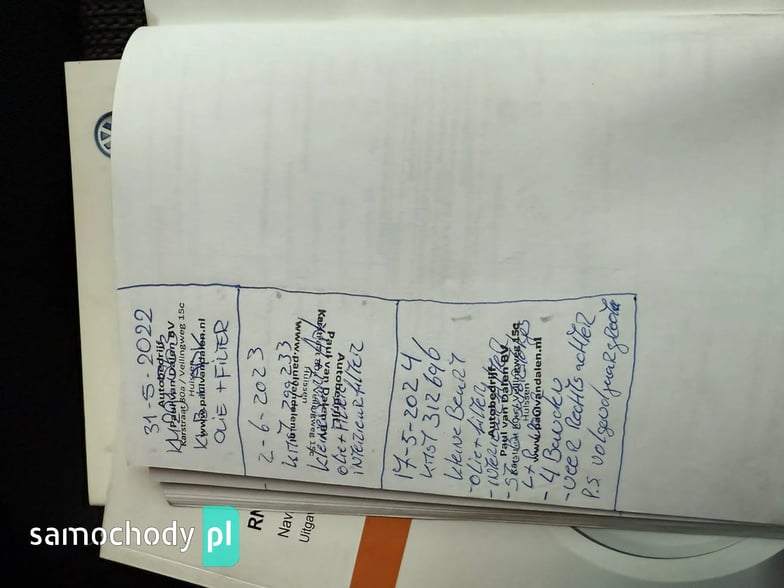 31-5-2022
Autobedrijf
Paul van Dalen BV
Karstraat 80a / Vellingweg 15c
Huissen
www.paulvandalen.nl
OLIE + FILTER
2-6-2023
KMST 299233
Kleine Beurt
Autobedrijf
Paul van Dalen BV
Huissen
www.paulvandalen.nl
Olie + Filter
INTERIEURFILTER
17-5-2024
KMST 312696
Kleine BEURT
- Olie + Filter
- INTERIEUR
Autobedrijf
Paul van Dalen BV
Karstraat 80a / Vellingweg 15c
Huissen
www.paulvandalen.nl
- 4 BANDEN
- VEER Rechts achter
P.S
samochody pl
Navi
Uitga